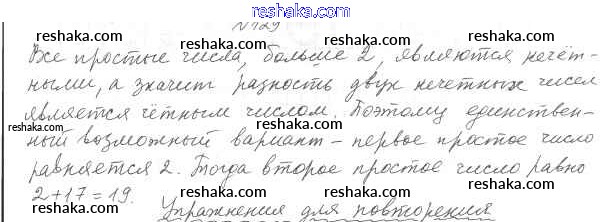 reshaka.com
№ 129
Все простые числа, больше 2, являются нечёт-
ными, а значит разность двух нечетных чисел
является чётным числом. Поэтому единствен-
ный возможный вариант – первое простое число
равняется 2. Тогда второе простое число равно
2+17=19.
Упражнения для повторения